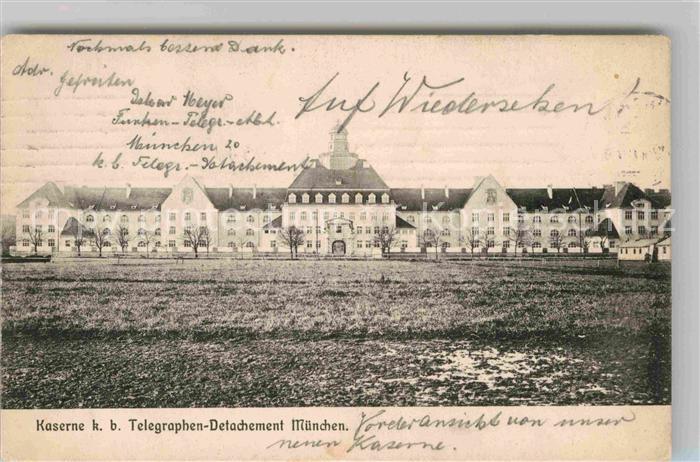 Nochmals bessend Dank.
Adr. Gefreiten
Oskar Meyer
Funken-Telegr.-Abt.
München 20
k. b. Telegr.-Detachement
Auf Wiedersehen!
Kaserne k. b. Telegraphen-Detachement München.
Vorderansicht von unser
neuen Kaserne.